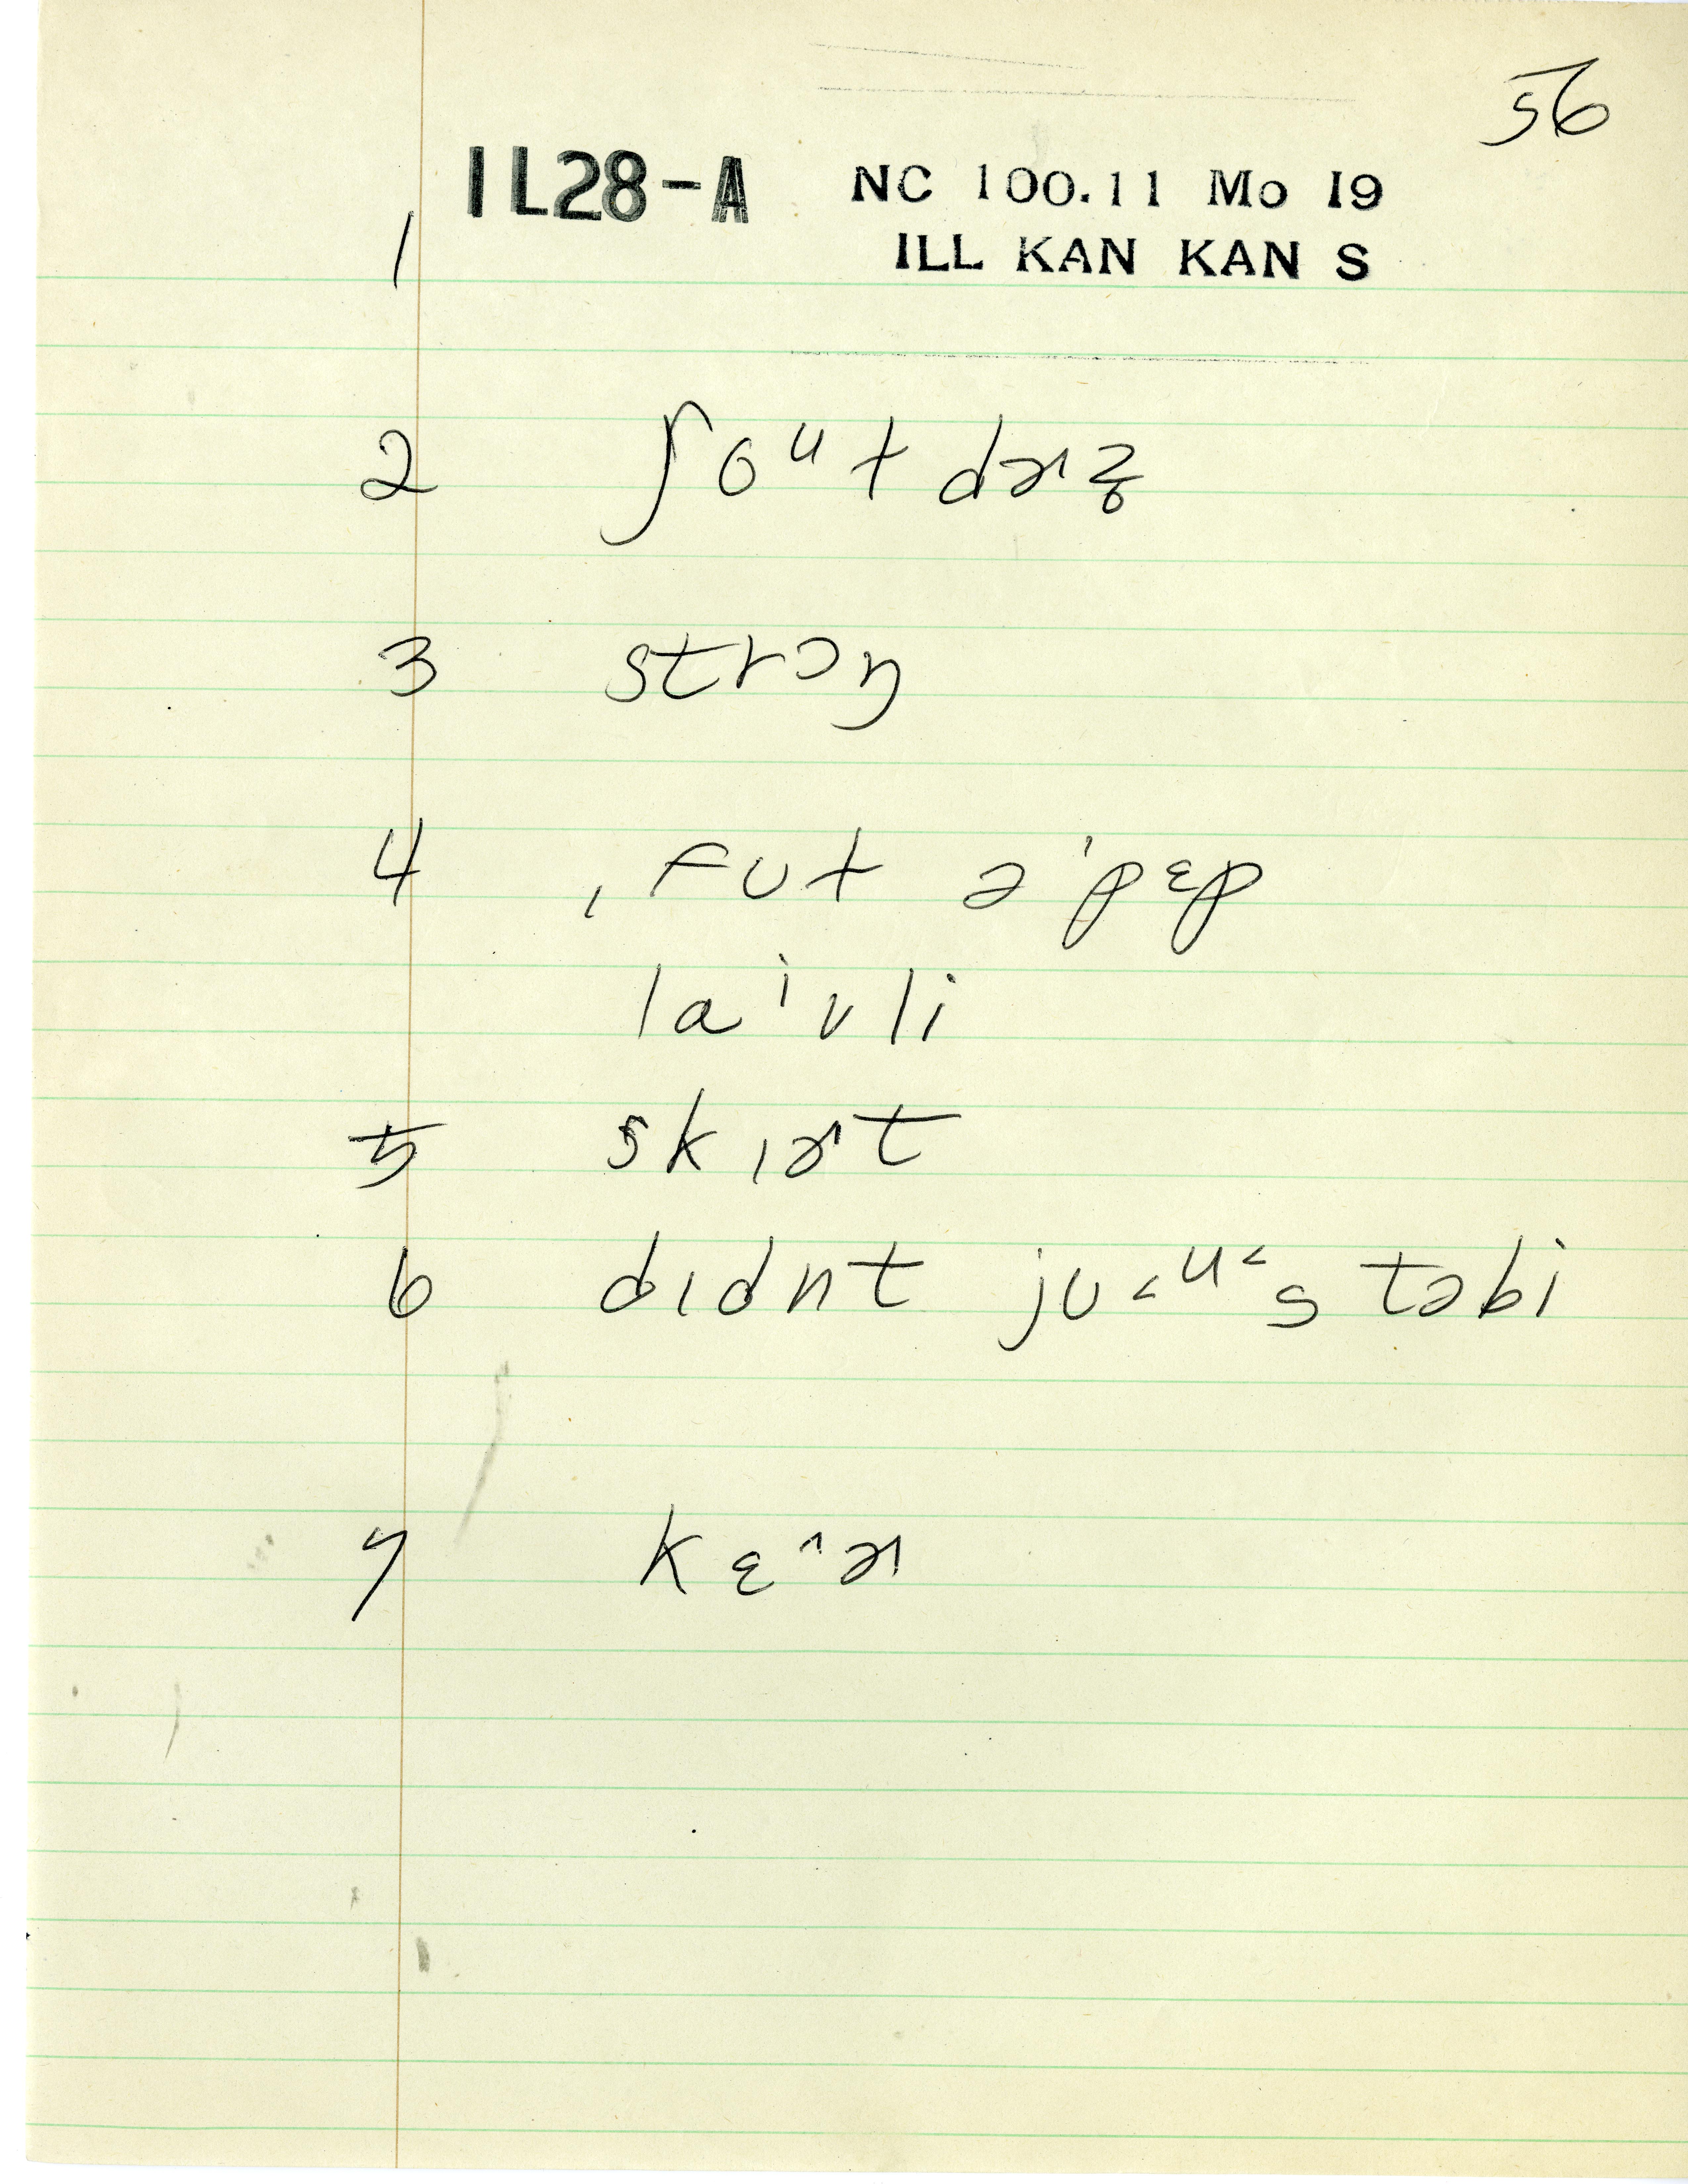 56
IL28-A NC 100.11 Mo 19
1 ILL KAN KAN S
2 ʃoᵘtdɚz̥
3 strɔŋ
4 ˌfʊt ə'pɛp
laⁱvli
5 skˌɚt
6 dɪdnt jʊ˂ᵘ˂s təbi
7 kɛ^ɚ